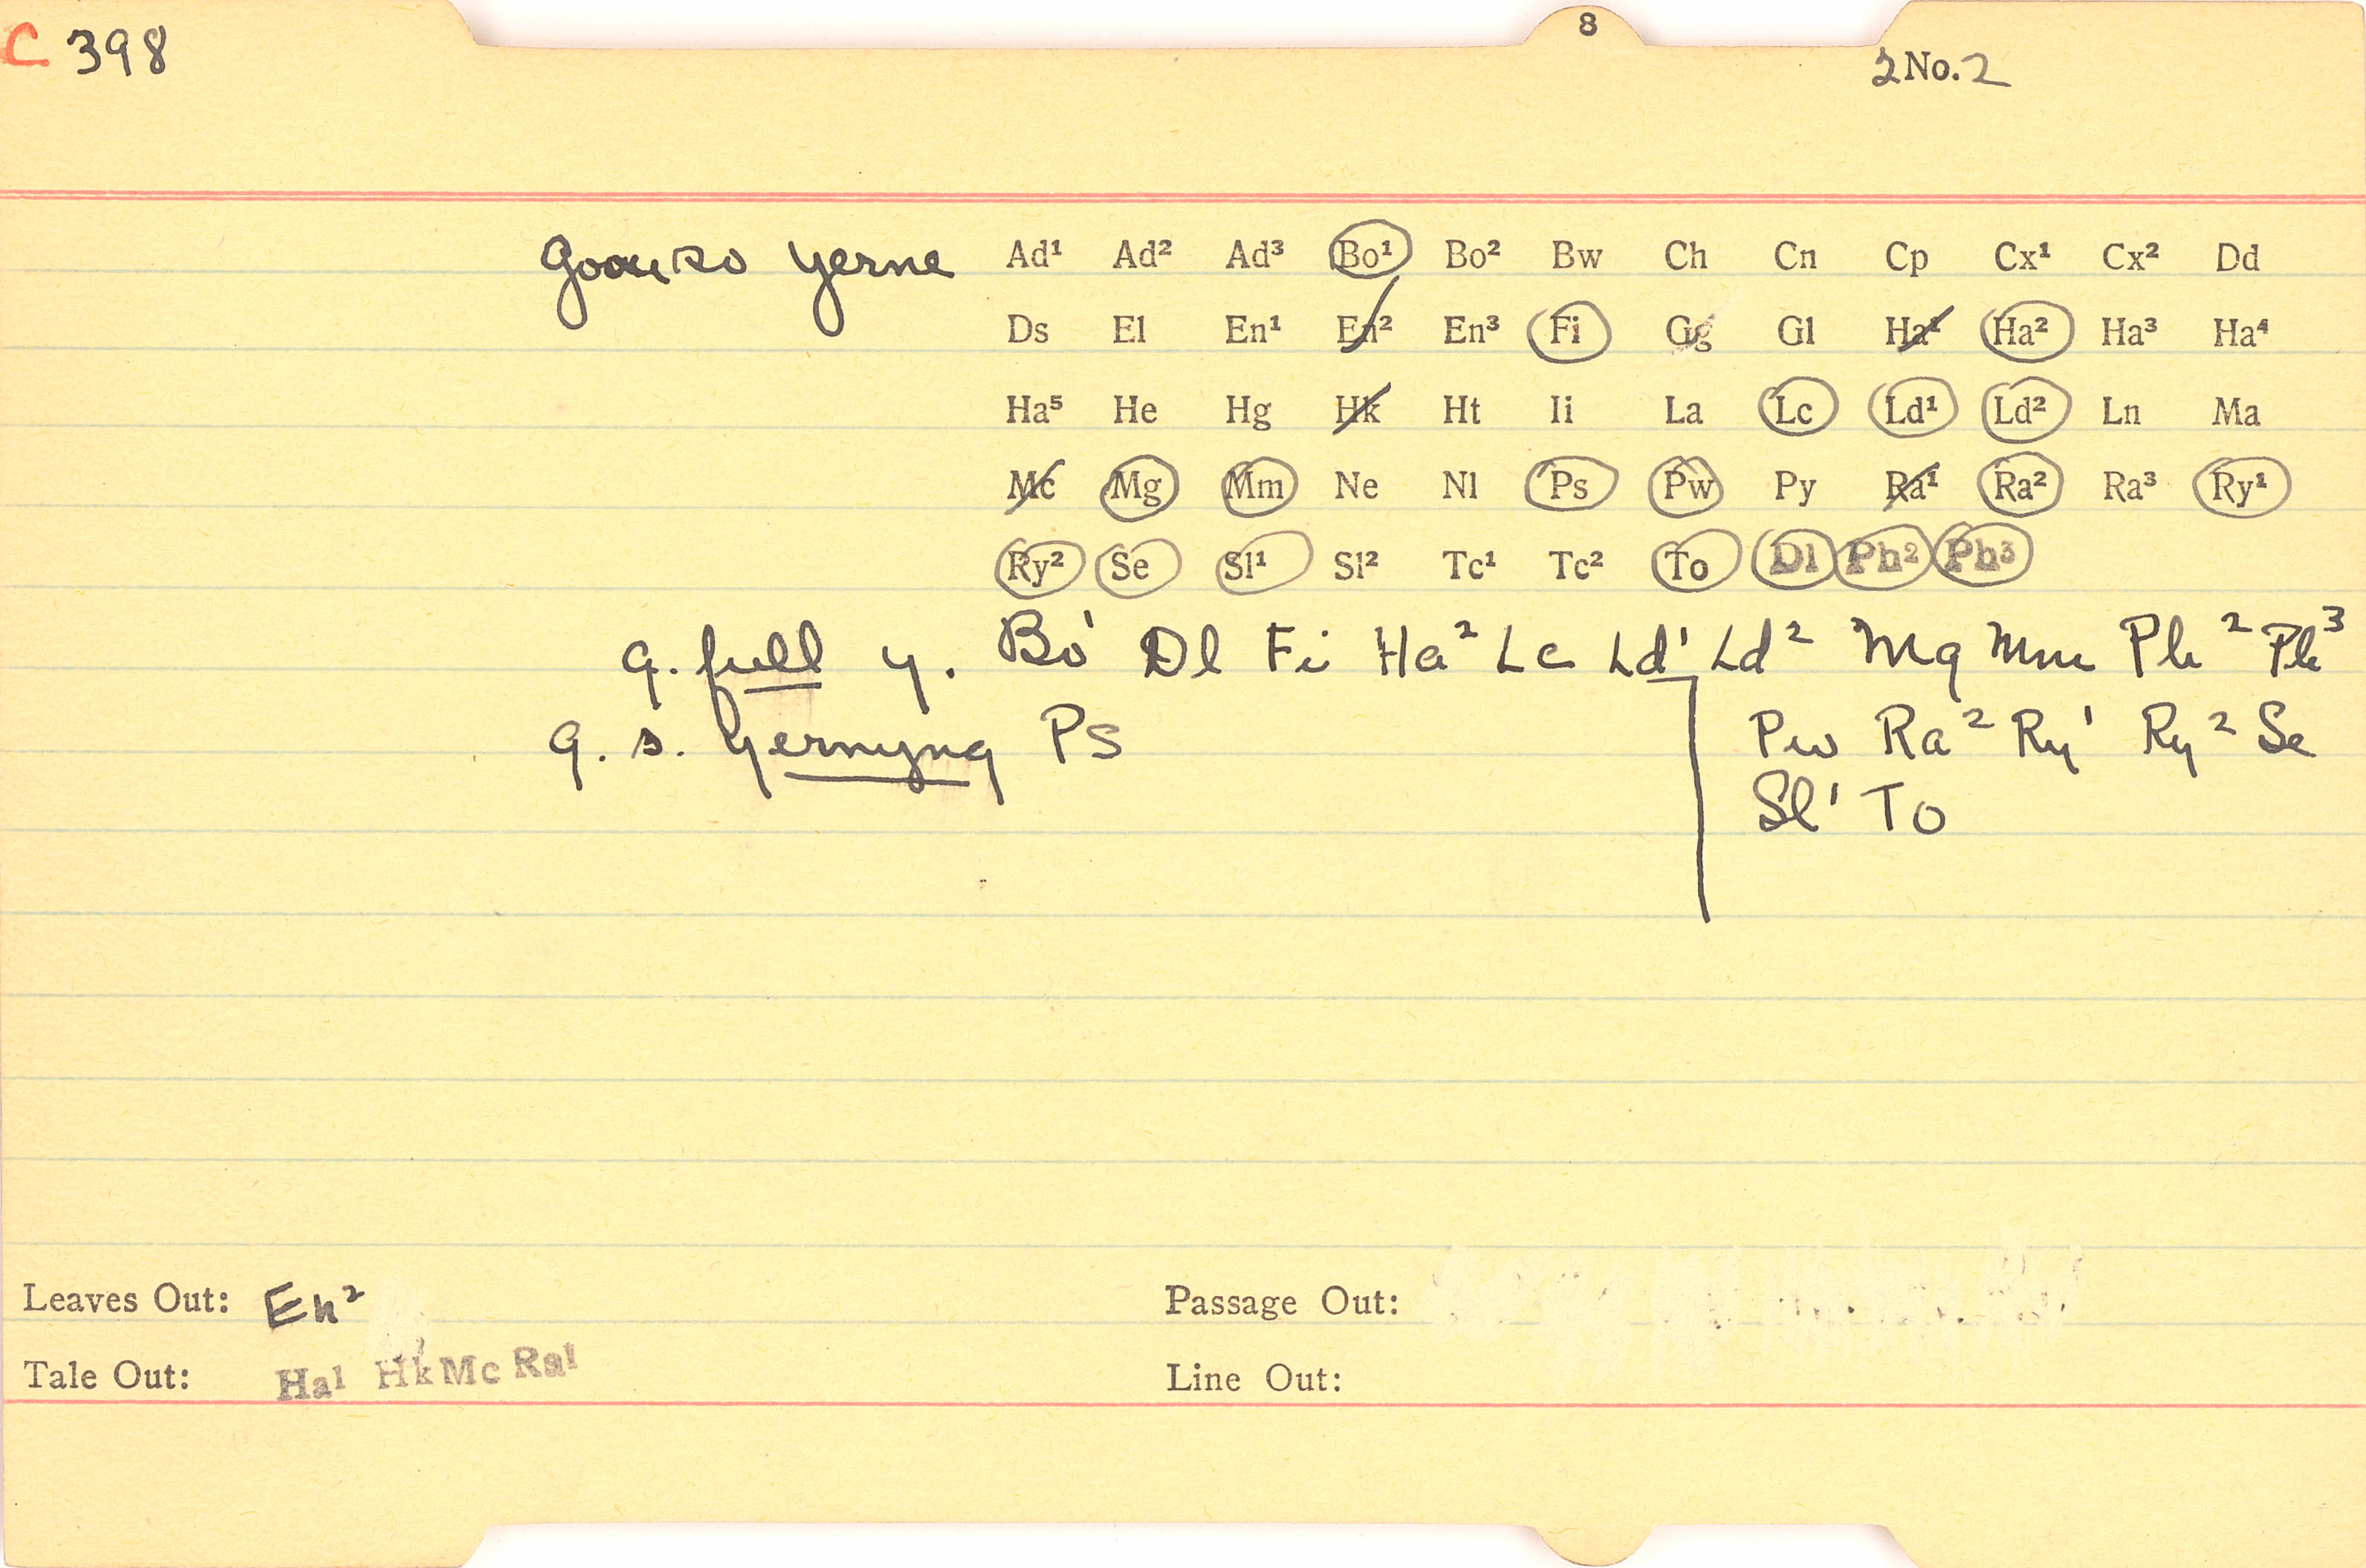 C 398
8
2 No. 2
goon so yerne Ad¹ Ad² Ad³ Bo¹ Bo² Bw Ch Cn Cp Cx¹ Cx² Dd
Ds El En¹ En² En³ Fi Gg Gl Ha¹ Ha² Ha³ Ha⁴
Ha⁵ He Hg Hk Ht Ii La Lc Ld¹ Ld² Ln Ma
Mc Mg Mm Ne Nl Ps Pw Py Ra¹ Ra² Ra³ Ry¹
Ry² Se Sl¹ Sl² Tc¹ Tc² To Dl Ph² Ph³
g. full y. Bo¹ Dl Fi Ha² Lc Ld¹ Ld² Mg Mm Ph² Ph³
g. s. yernyng Ps Pw Ra² Ry¹ Ry² Se
Sl¹ To
Leaves Out: En² Passage Out:
Tale Out: Ha¹ Hk Mc Ra¹ Line Out: